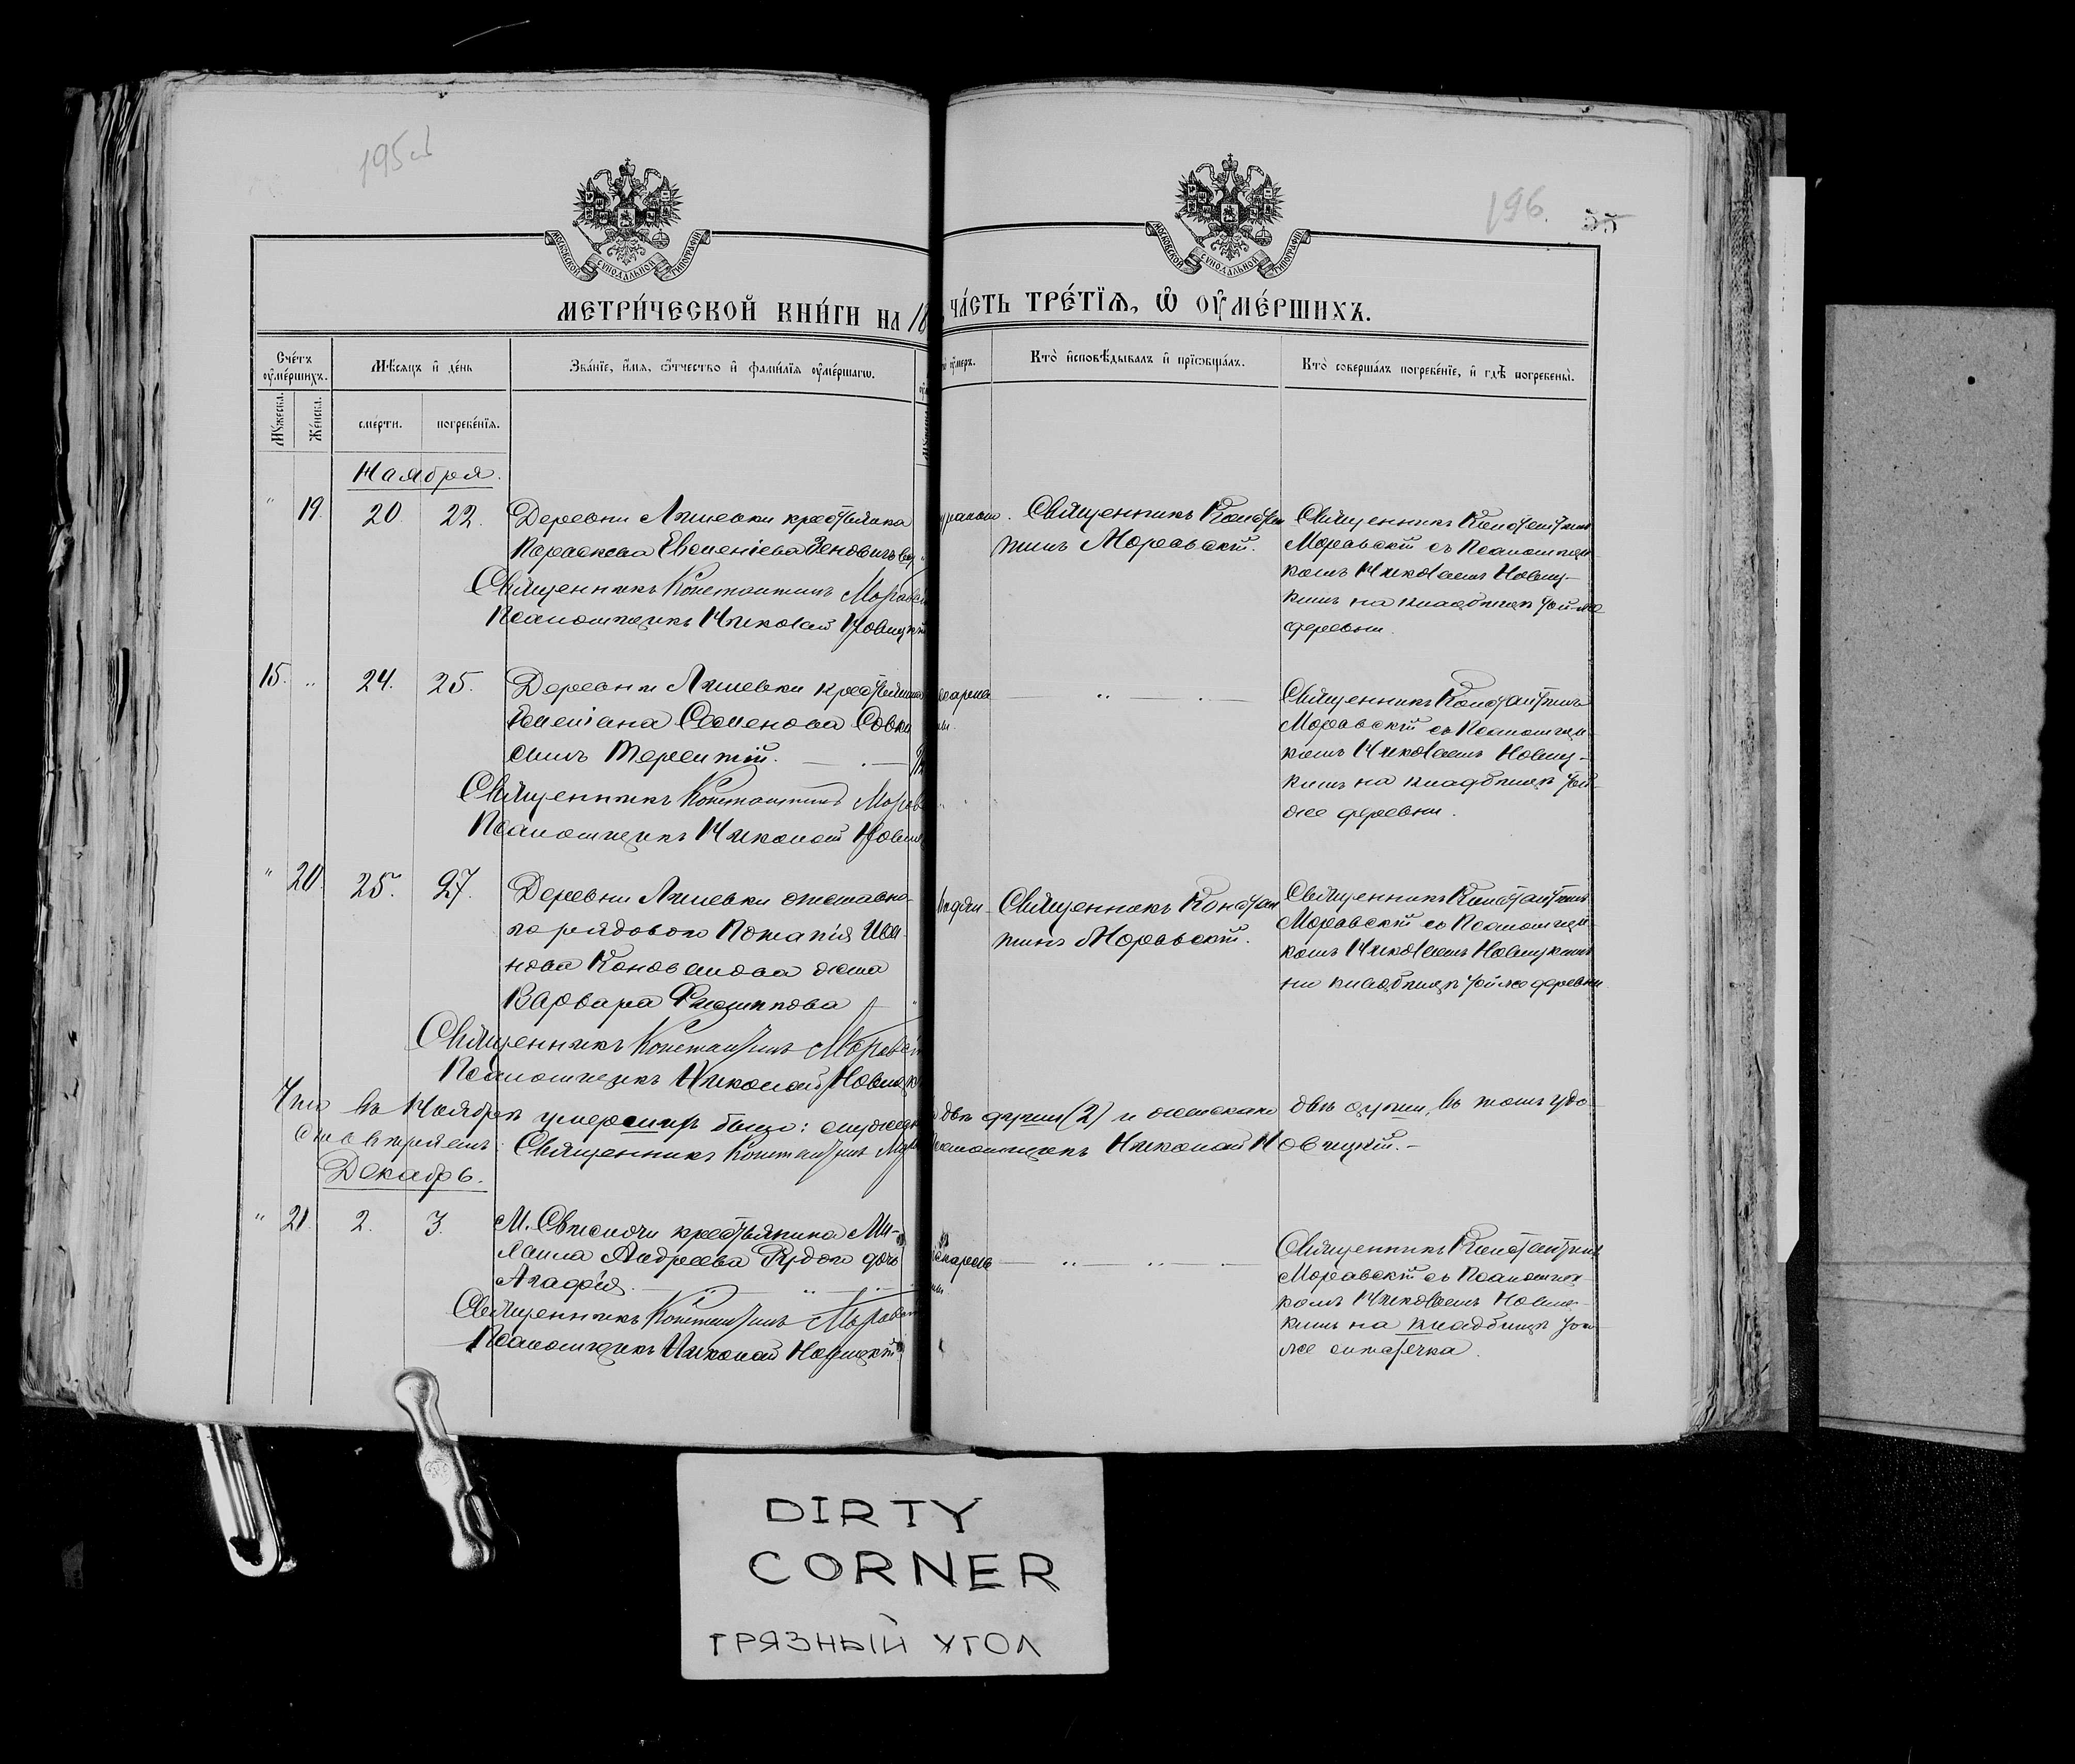 195об
196. 55
МОСКОВСКОЙ СѴНОДАЛЬНОЙ ТИПОГРАФІИ
МОСКОВСКОЙ СѴНОДАЛЬНОЙ ТИПОГРАФІИ
МЕТРИ́ЧЕСКОЙ КНИ́ГИ НА 18
ЧА́СТЬ ТРЕ́ТЇѦ, Ѡ ОУ҆МЕ́РШИХЪ.
Сче́тъ оу҆ме́ршихъ.
Мѣ́сѧцъ и҆ де́нь
Зва́нїе, и҆́мѧ, ѻ҆́тчество и҆ фами́лїѧ оу҆ме́ршагѡ.
оу҆меръ.
Кто̀ и҆сповѣ́дывалъ и҆ прїѡбща́лъ.
Кто̀ соверша́лъ погребе́нїе, и҆ гдѣ̀ погребены̀.
Мꙋ́жеска.
Же́нска.
сме́рти.
погребе́нїѧ.
Ноября.
" 19. 20. 22. Деревни Лишевки крестьянка
Параскева Евсеніева
Священникъ Константинъ Моравск
Псаломщикъ Николай Новицкій
Священникъ Констан
тинъ Моравскій.
Священникъ Константинъ
Моравскій съ Псаломщи
комъ Николаемъ Новиц-
кимъ на кладбищѣ той-же
деревни.
15. " 24. 25. Деревни Лишевки крестьянина
Емеліана Семенова Совки
сынъ Терентій.
Священникъ Константинъ Морав
Псаломщикъ Николай Новиц
Священникъ Константинъ
Моравскій съ Псаломщи
комъ Николаемъ Новиц-
кимъ на кладбищѣ той
же деревни.
" 20. 25. 27. Деревни Лишевки отставно-
го рядового Потапія Ива
нова Коновалова жена
Варвара Филиппова
Священникъ Константинъ Моравскі
Псаломщикъ Николай Новицк
Священникъ Констан
тинъ Моравскій.
Священникъ Константинъ
Моравскій съ Псаломщи
комъ Николаемъ Новицкимъ
на кладбищѣ той же деревни
Что въ Ноябрѣ умершихъ было: мужеска двѣ души (2) и женскаго двѣ души, въ томъ удо
стовѣряемъ: Священникъ Константинъ Псаломщикъ Николай Новицкій.-
Декабрь.
" 21. 2. 3. М. Свислочи крестьянина Ми-
хаила Андреева Рудого дочь
Агафія.
Священникъ Константинъ Моравскі
Псаломщикъ Николай Новицкій
Священникъ Константинъ
Моравскій съ Псаломщи
комъ Николаемъ Новиц-
кимъ на кладбищѣ того
же мѣстечка.
DIRTY
CORNER
ГРЯЗНЫЙ УГОЛ